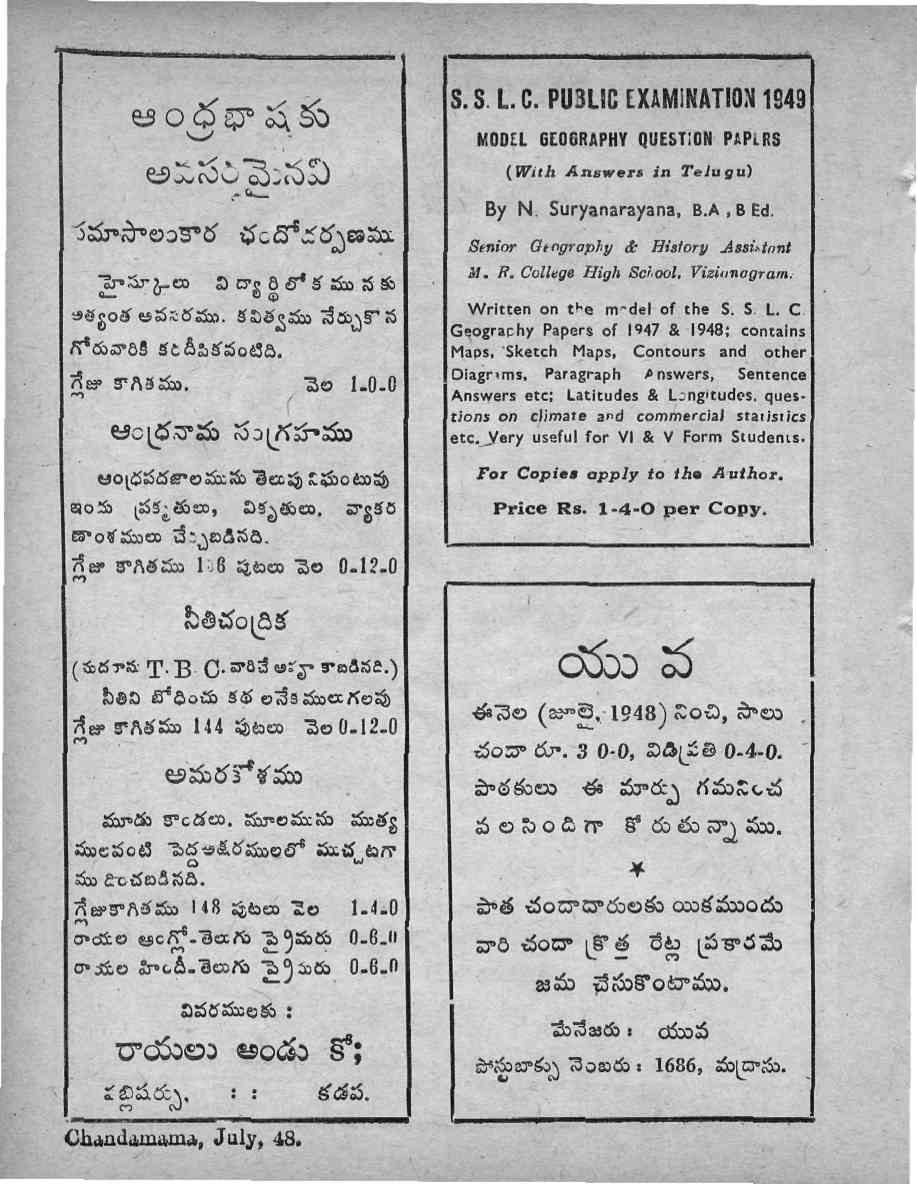 ఆంధ్రభాషకు
అవసరమైనవి
సమాసాలంకార ఛందోదర్పణము
హైస్కూలు విద్యార్థిలోకమునకు
అత్యంత అవసరము. కవిత్వము నేర్చుకొన
గోరువారికి కరదీపికవంటిది.
గ్లేజు కాగితము. వెల 1-0-0
ఆంధ్రనామ సంగ్రహము
ఆంధ్రపదజాలమును తెలుపు నిఘంటువు
ఇందు ప్రకృతులు, వికృతులు, వ్యాకర
ణాంశములు చేర్చబడినది.
గ్లేజు కాగితము పుటలు వెల 0-12-0
నీతిచంద్రిక
(మదరాసు T. B. C. వారిచే కాబడినది.)
నీతిని బోధించు కథ లనేకములుగలవు
గ్లేజు కాగితము 144 పుటలు వెల 0-12-0
అమరకోశము
మూడు కాండలు, మూలమును ముత్య
ములవంటి పెద్దఅక్షరములలో ముచ్చటగా
ముద్రించబడినది.
గ్లేజుకాగితము 148 పుటలు వెల 1-4-0
రాయల ఆంగ్లో-తెలుగు ప్రైమరు 0-6-0
రాయల హిందీ-తెలుగు ప్రైమరు 0-6-0
వివరములకు :
రాయలు అండు కో;
పబ్లిషర్సు, : : కడప.
S. S. L. C. PUBLIC EXAMINATION 1949
MODEL GEOGRAPHY QUESTION PAPERS
(With Answers in Telugu)
By N. Suryanarayana, B.A., B Ed.
Senior Geography & History Assistant
M. R. College High School, Vizianagram.
Written on the model of the S. S. L. C
Geography Papers of 1947 & 1948; contains
Maps, Sketch Maps, Contours and other
Diagrams, Paragraph Answers, Sentence
Answers etc; Latitudes & Longitudes, ques-
tions on climate and commercial statistics
etc. Very useful for VI & V Form Students.
For Copies apply to the Author.
Price Rs. 1-4-0 per Copy.
యువ
ఈనెల (జూలై, 1948) నించి, సాలు
చందా రూ. 3 0-0, విడిప్రతి 0-4-0.
పాఠకులు ఈ మార్పు గమనించ
వలసిందిగా కోరుతున్నాము.
★
పాత చందాదారులకు యికముందు
వారి చందా క్రొత్త రేట్ల ప్రకారమే
జమ చేసుకొంటాము.
మేనేజరు : యువ
పోస్టుబాక్సు నెంబరు : 1686, మద్రాసు.
Chandamama, July, 48.